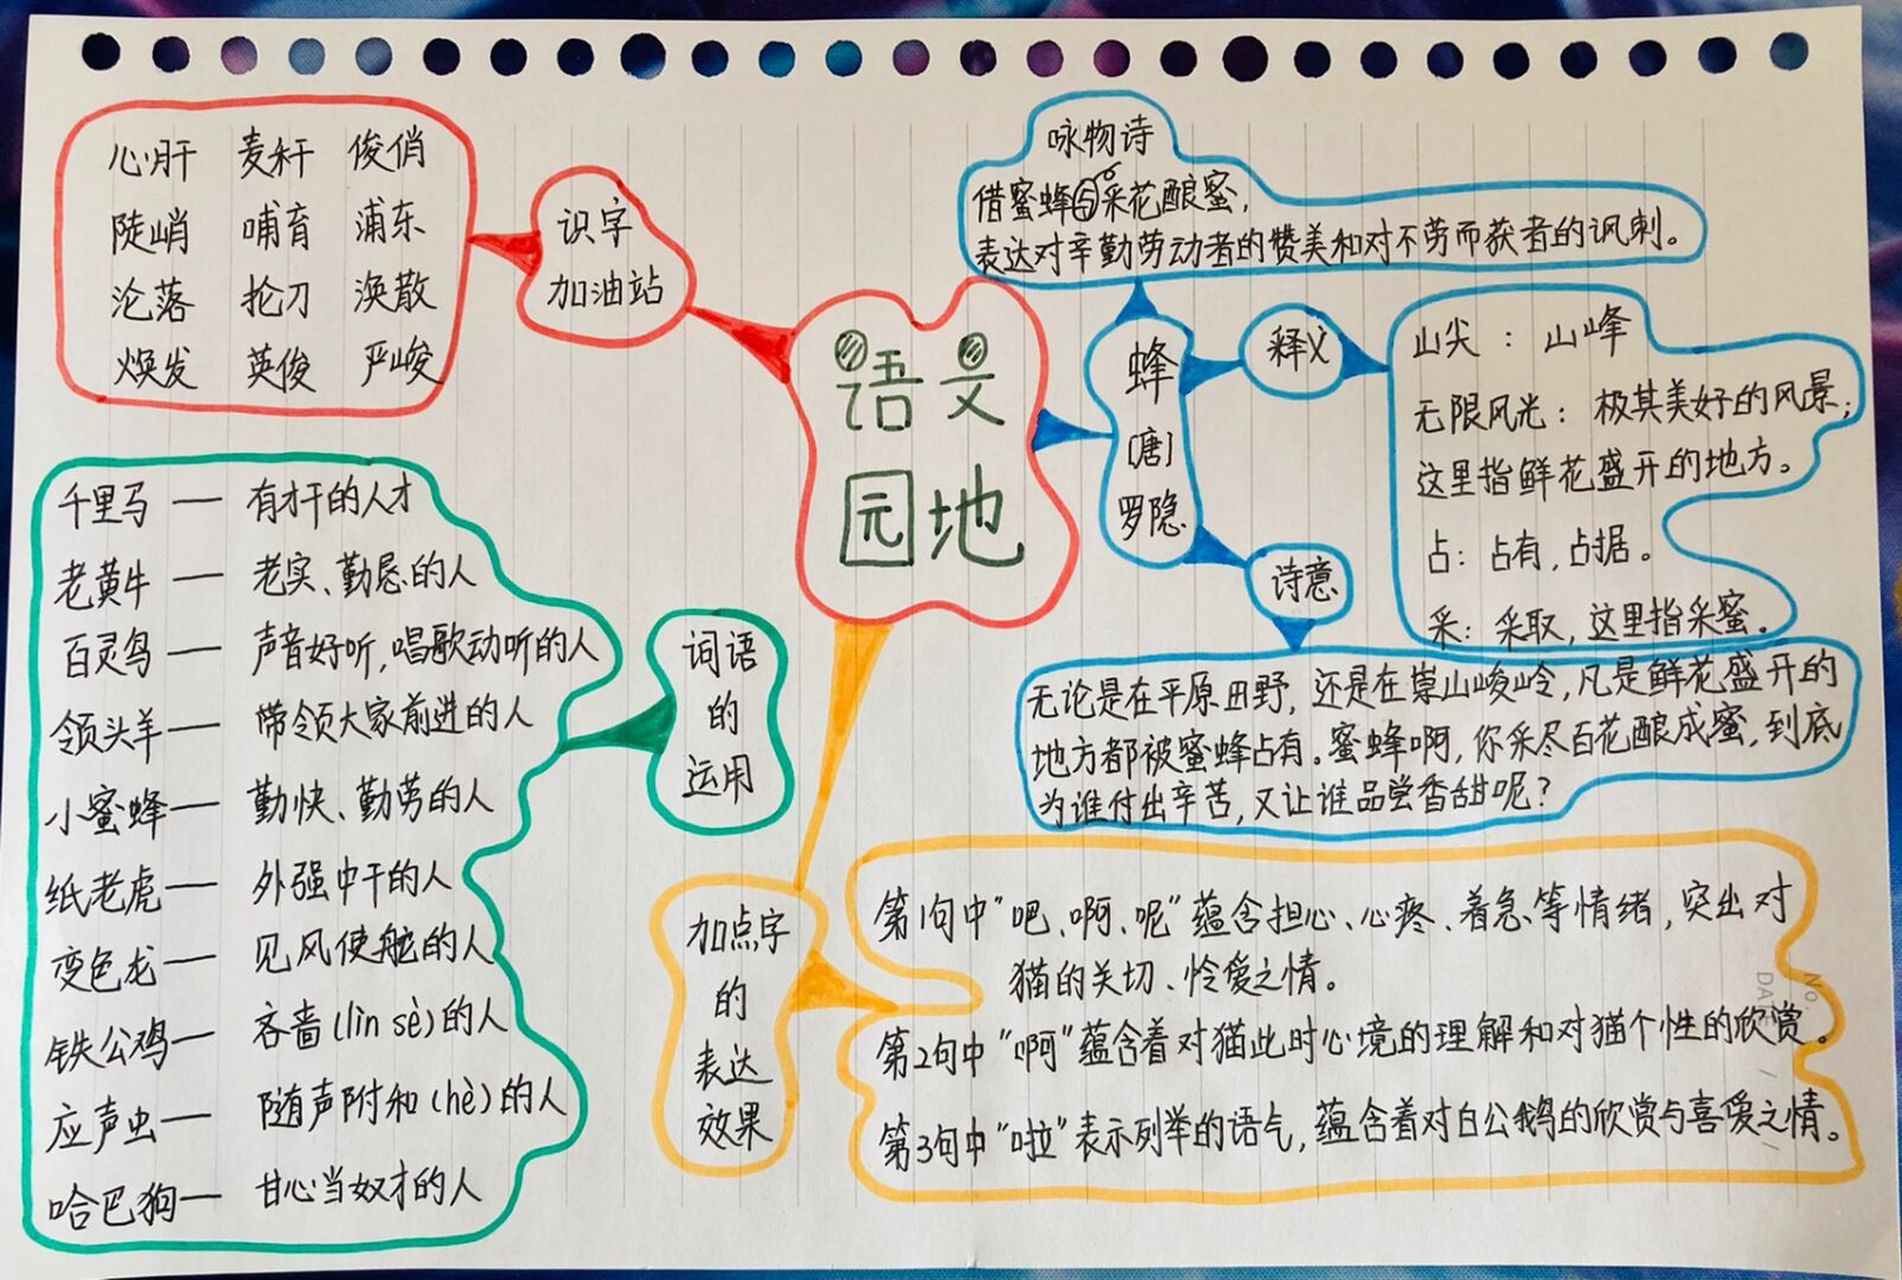 语文
园地
识字
加油站
心肝 麦秆 俊俏
陡峭 哺育 浦东
沦落 抡刀 涣散
焕发 英俊 严峻
词语
的
运用
千里马 — 有才干的人才
老黄牛 — 老实、勤恳的人
百灵鸟 — 声音好听,唱歌动听的人
领头羊 — 带领大家前进的人
小蜜蜂 — 勤快、勤劳的人
纸老虎 — 外强中干的人
变色龙 — 见风使舵的人
铁公鸡 — 吝啬(lìn sè)的人
应声虫 — 随声附和(hè)的人
哈巴狗 — 甘心当奴才的人
蜂
[唐]
罗隐
咏物诗
借蜜蜂采花酿蜜,
表达对辛勤劳动者的赞美和对不劳而获者的讽刺。
释义
山尖:山峰
无限风光:极其美好的风景;
这里指鲜花盛开的地方。
占:占有,占据。
采:采取,这里指采蜜。
诗意
无论是在平原田野,还是在崇山峻岭,凡是鲜花盛开的
地方都被蜜蜂占有。蜜蜂啊,你采尽百花酿成蜜,到底
为谁付出辛苦,又让谁品尝香甜呢?
加点字
的
表达
效果
第1句中“吧、啊、呢”蕴含担心、心疼、着急等情绪,突出对
猫的关切、怜爱之情。
第2句中“啊”蕴含着对猫此时心境的理解和对猫个性的欣赏。
第3句中“啦”表示列举的语气,蕴含着对白公鹅的欣赏与喜爱之情。
No.
DATE / /